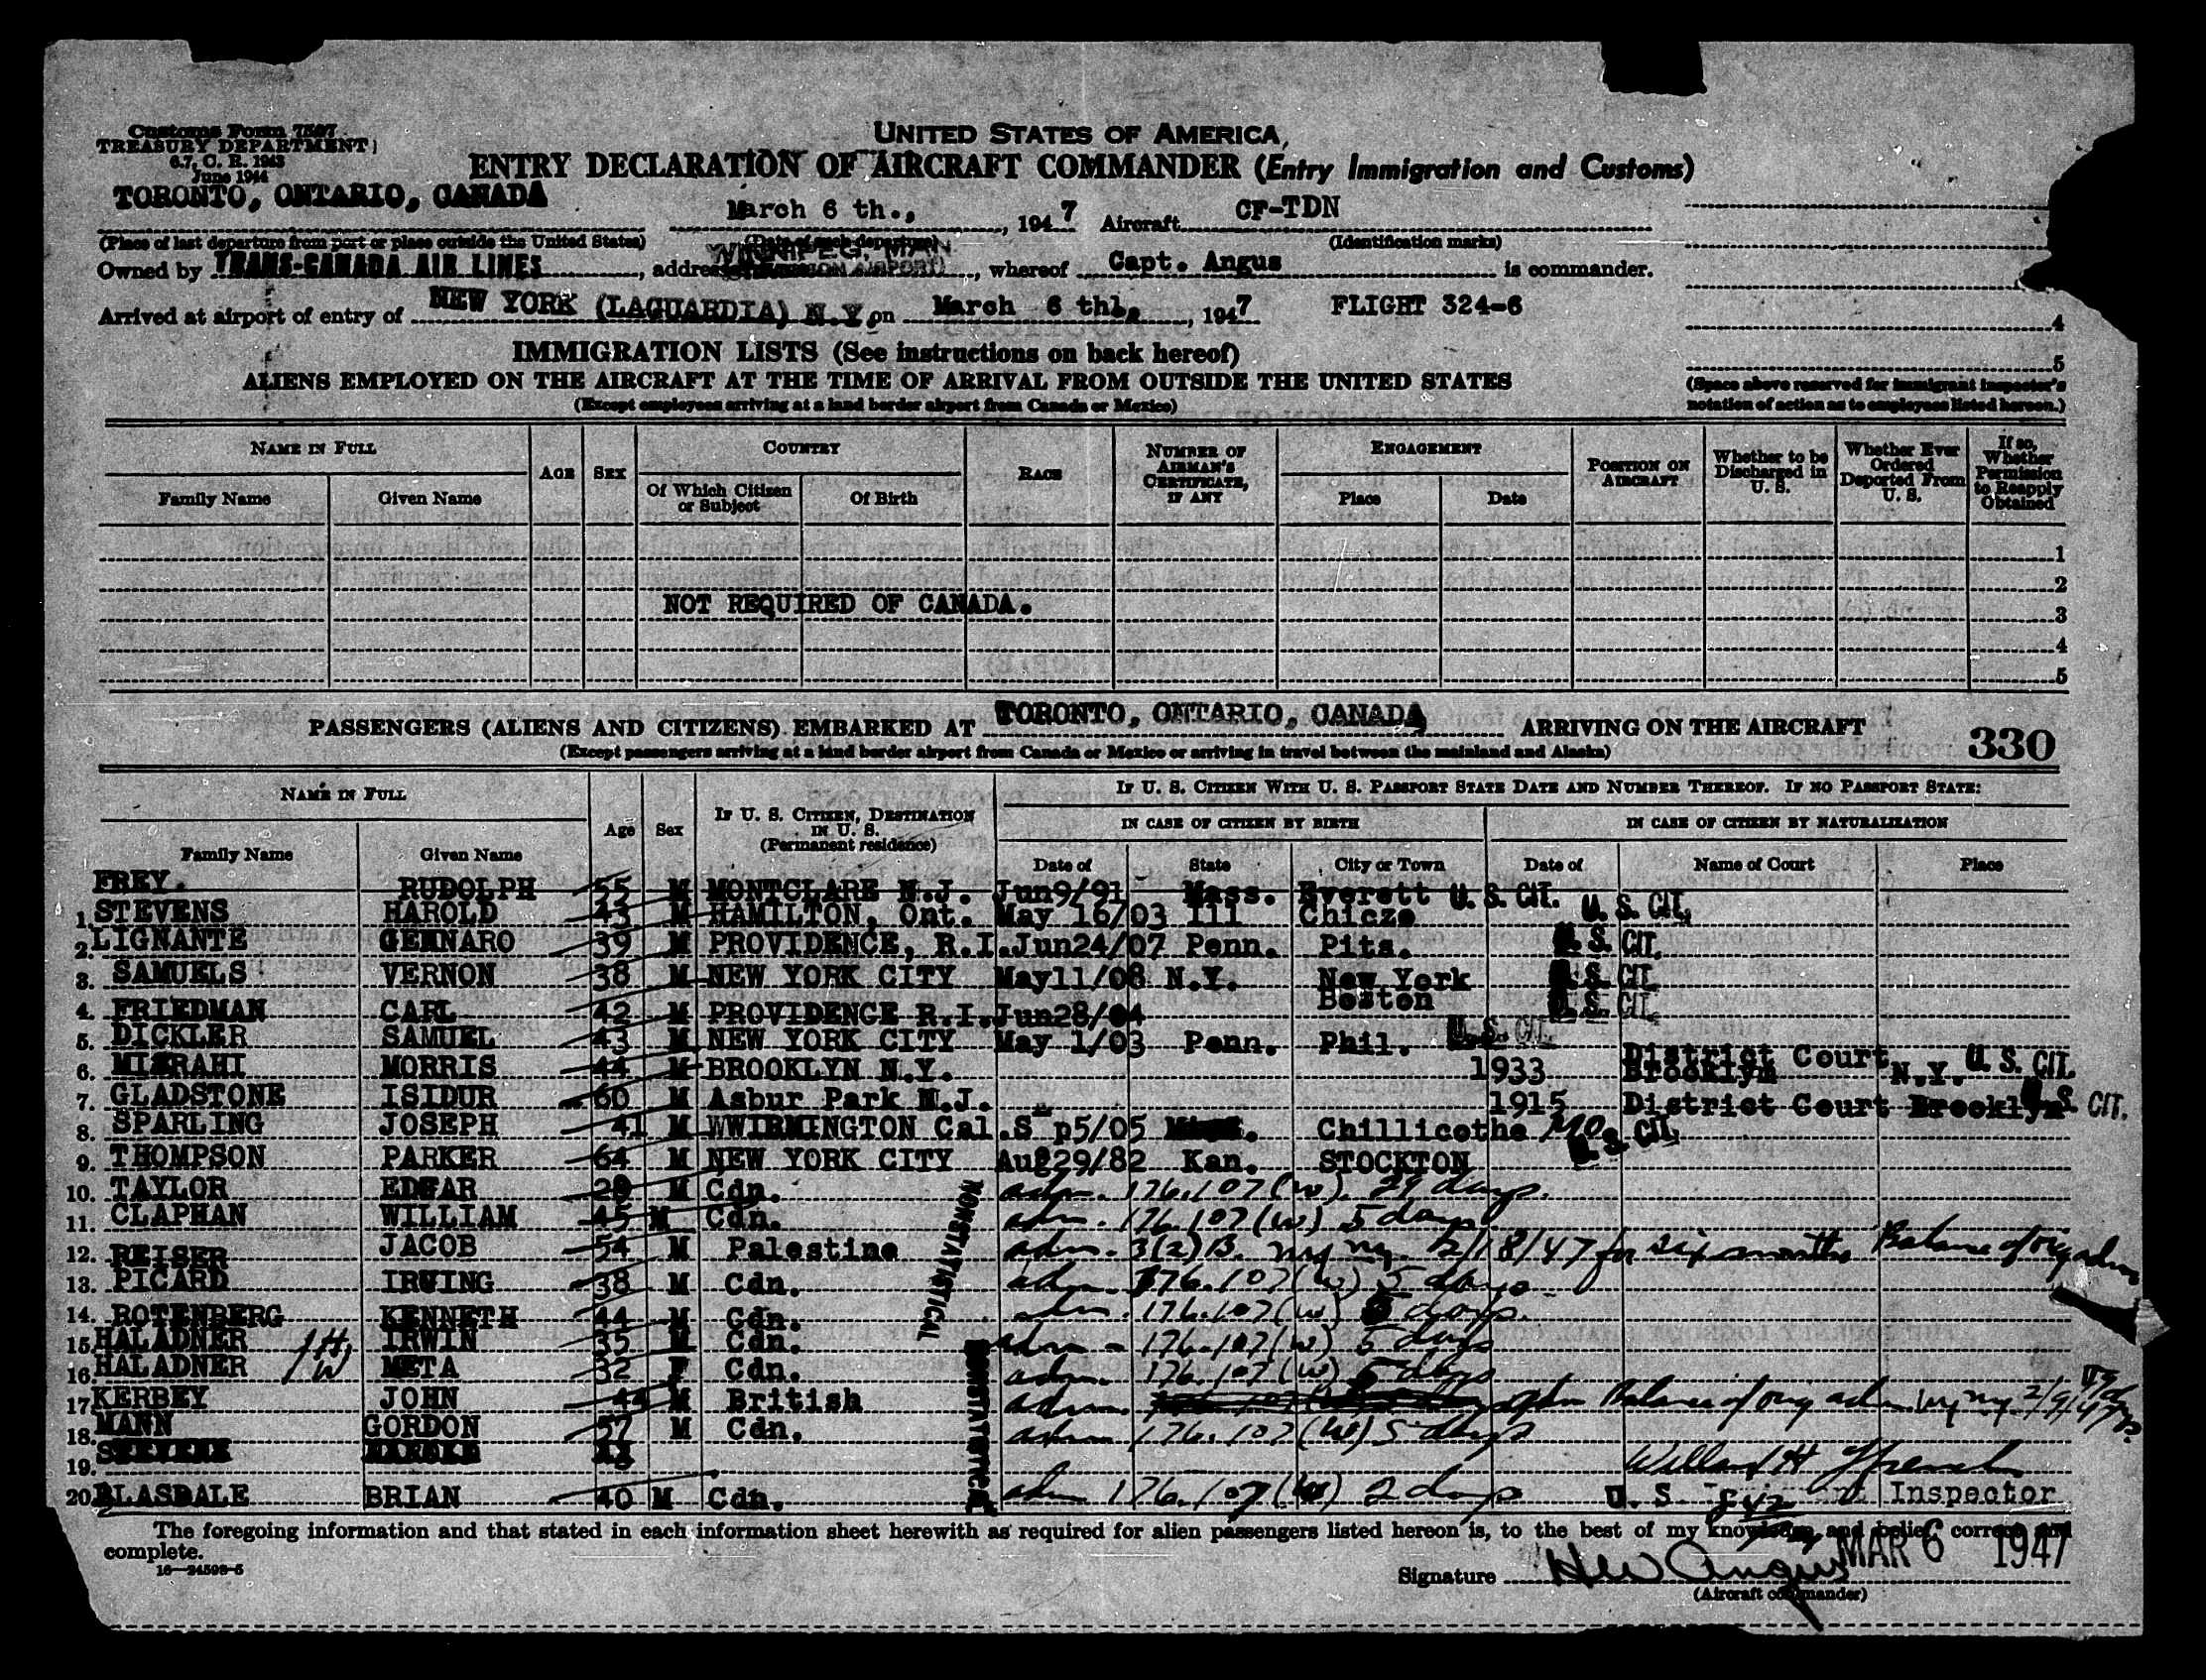 Customs Form 7507
TREASURY DEPARTMENT
6.7, C. R. 1943
June 1944
UNITED STATES OF AMERICA,
ENTRY DECLARATION OF AIRCRAFT COMMANDER (Entry Immigration and Customs)
TORONTO, ONTARIO, CANADA March 6 th., , 1947 Aircraft CF-TDN
(Place of last departure from port or place outside the United States) (Date of such departure) (Identification marks)
Owned by TRANS-CANADA AIR LINES , address WINNIPEG, MAN , whereof Capt. Angus is commander.
Arrived at airport of entry of NEW YORK (LAGUARDIA) N.Y. on March 6 th , 1947 FLIGHT 324-6
4
5
IMMIGRATION LISTS (See instructions on back hereof)
ALIENS EMPLOYED ON THE AIRCRAFT AT THE TIME OF ARRIVAL FROM OUTSIDE THE UNITED STATES
(Except employees arriving at a land border airport from Canada or Mexico)
(Space above reserved for immigrant inspector's
notation of action as to employees listed hereon.)
NAME IN FULL
Family Name Given Name
AGE SEX
COUNTRY
Of Which Citizen or Subject Of Birth
RACE
NUMBER OF AIRMAN'S CERTIFICATE, IF ANY
ENGAGEMENT
Place Date
POSITION ON AIRCRAFT
Whether to be Discharged in U. S.
Whether Ever Ordered Deported From U. S.
If so, Whether Permission to Reapply Obtained
1
2
NOT REQUIRED OF CANADA.
3
4
5
PASSENGERS (ALIENS AND CITIZENS) EMBARKED AT TORONTO, ONTARIO, CANADA ARRIVING ON THE AIRCRAFT
(Except passengers arriving at a land border airport from Canada or Mexico or arriving in travel between the mainland and Alaska)
330
NAME IN FULL
Family Name Given Name
Age Sex
IF U. S. CITIZEN, DESTINATION IN U. S.
(Permanent residence)
IF U. S. CITIZEN WITH U. S. PASSPORT STATE DATE AND NUMBER THEREOF. IF NO PASSPORT STATE:
IN CASE OF CITIZEN BY BIRTH IN CASE OF CITIZEN BY NATURALIZATION
Date of State City or Town Date of Name of Court Place
FREY. RUDOLPH 55 M MONTCLARE N.J. Jun9/91 Mass. Everett U. S. CIT.
1. STEVENS HAROLD 43 M HAMILTON, Ont. May 16/03 Ill Chicze U. S. CIT.
2. LIGNANTE GENNARO 39 M PROVIDENCE, R.I. Jun24/07 Penn. Pits. U. S. CIT.
3. SAMUELS VERNON 38 M NEW YORK CITY May11/08 N.Y. New York U. S. CIT.
4. FRIEDMAN CARL 42 M PROVIDENCE R.I. Jun28/04 Boston U. S. CIT.
5. DICKLER SAMUEL 43 M NEW YORK CITY May 1/03 Penn. Phil. U. S. CIT.
6. MIZRAHI MORRIS 44 M BROOKLYN N.Y. 1933 District Court Brooklyn N.Y. U. S. CIT.
7. GLADSTONE ISIDUR 60 M Asbur Park N.J. 1915 District Court Brooklyn U. S. CIT.
8. SPARLING JOSEPH 41 M WWIRMINGTON Cal. S p5/05 Chillicothe Mo. U. S. CIT.
9. THOMPSON PARKER 64 M NEW YORK CITY Aug29/82 Kan. STOCKTON
10. TAYLOR EDGAR 29 M Cdn. adm. 176.107(w). 29 days.
11. CLAPHAN WILLIAM 45 M Cdn. adm. 176.107(w) 5 days
12. REISER JACOB 54 M Palestine adm. 3(2)B. ny ny. 2/18/47 for six months Balance of orig adm
13. PICARD IRVING 38 M Cdn. adm 176.107(w) 5 days
14. ROTENBERG KENNETH 44 M Cdn. adm. 176.107(w) 5 days.
15. HALADNER IRWIN 35 M Cdn. adm - 176.107(w) 5 days
16. HALADNER META 32 F Cdn. adm. 176.107(w) 5 days
17. KERBEY JOHN 44 M British adm. Balance of orig adm. ny ny. 2/9/47
18. MANN GORDON 57 M Cdn. adm 176.107(w) 5 days
19. STEVENS HAROLD 43
20. BLASDALE BRIAN 40 M Cdn. adm 176.107(w) 2 days
NONSTATISTICAL
NONSTATISTICAL
Willard H French
U. S. Inspector
The foregoing information and that stated in each information sheet herewith as required for alien passengers listed hereon is, to the best of my knowledge and belief, correct and
complete.
16—24598-5
MAR 6 1947
Signature H W Angus
(Aircraft commander)